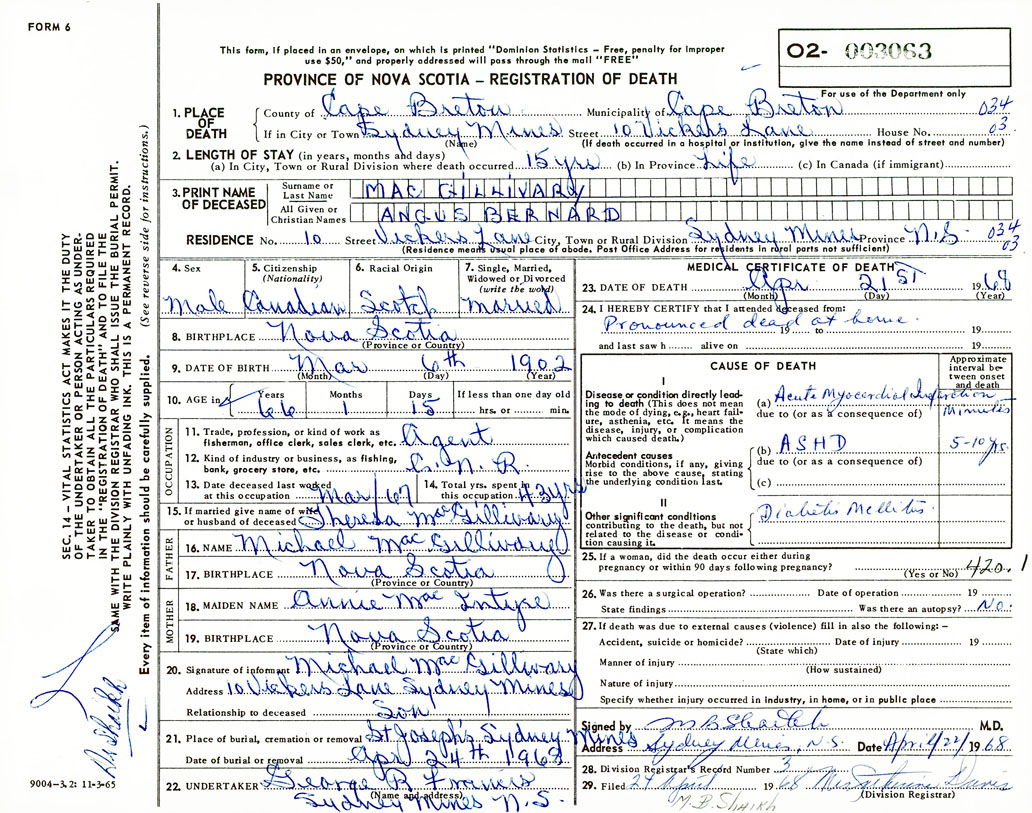 FORM 6
This form, if placed in an envelope, on which is printed "Dominion Statistics – Free, penalty for improper
use $50," and properly addressed will pass through the mail "FREE"
O2- 003063
For use of the Department only
PROVINCE OF NOVA SCOTIA – REGISTRATION OF DEATH
1. PLACE OF DEATH
County of Cape Breton Municipality of Cape Breton 034
If in City or Town Sydney Mines Street 10 Vickers Lane House No. 03
(Name) (If death occurred in a hospital or institution, give the name instead of street and number)
2. LENGTH OF STAY (in years, months and days)
(a) In City, Town or Rural Division where death occurred 15 yrs (b) In Province Life (c) In Canada (if immigrant)
3. PRINT NAME OF DECEASED
Surname or Last Name MAC GILLIVARY
All Given or Christian Names ANGUS BERNARD
RESIDENCE No. 10 Street Vickers Lane City, Town or Rural Division Sydney Mines Province N.S. 034 03
(Residence means usual place of abode. Post Office Address for residents in rural parts not sufficient)
4. Sex 5. Citizenship (Nationality) 6. Racial Origin 7. Single, Married, Widowed or Divorced (write the word)
Male Canadian Scotch Married
8. BIRTHPLACE Nova Scotia
(Province or Country)
9. DATE OF BIRTH Mar 6th 1902
(Month) (Day) (Year)
10. AGE in Years Months Days If less than one day old
66 1 15 hrs. or min.
OCCUPATION
11. Trade, profession, or kind of work as
fisherman, office clerk, sales clerk, etc. Agent
12. Kind of industry or business, as fishing,
bank, grocery store, etc. C.N.R.
13. Date deceased last worked
at this occupation Mar/67
14. Total yrs. spent in
this occupation 43 yrs
15. If married give name of wife
or husband of deceased Theresa MacGillivary
FATHER
16. NAME Michael MacGillivary
17. BIRTHPLACE Nova Scotia
(Province or Country)
MOTHER
18. MAIDEN NAME Annie Mac Intyre
19. BIRTHPLACE Nova Scotia
(Province or Country)
20. Signature of informant Michael MacGillivary
Address 10 Vickers Lane Sydney Mines
Relationship to deceased Son
21. Place of burial, cremation or removal St Joseph's, Sydney Mines
Date of burial or removal Apr 24th 1968
22. UNDERTAKER George B Francis
(Name and address)
Sydney Mines N.S.
MEDICAL CERTIFICATE OF DEATH
23. DATE OF DEATH Apr 21ST 1968
(Month) (Day) (Year)
24. I HEREBY CERTIFY that I attended deceased from:
Pronounced dead at home.
19 to 19
and last saw h alive on 19
CAUSE OF DEATH
Approximate interval between onset and death
I
Disease or condition directly leading to death (This does not mean
the mode of dying, e.g., heart failure, asthenia, etc. It means the
disease, injury, or complication
which caused death.)
(a) Acute Myocardial Infarction Minutes
due to (or as a consequence of)
Antecedent causes
Morbid conditions, if any, giving
rise to the above cause, stating
the underlying condition last.
(b) ASHD 5-10 yrs.
due to (or as a consequence of)
(c)
II
Other significant conditions
contributing to the death, but not
related to the disease or condition causing it.
Diabetis Mellitis.
25. If a woman, did the death occur either during
pregnancy or within 90 days following pregnancy? 420.1
(Yes or No)
26. Was there a surgical operation? Date of operation 19
State findings Was there an autopsy? No.
27. If death was due to external causes (violence) fill in also the following: –
Accident, suicide or homicide? Date of injury 19
(State which)
Manner of injury
(How sustained)
Nature of injury
Specify whether injury occurred in industry, in home, or in public place
Signed by M B Shaikh M.D.
Address Sydney Mines, N.S. Date April/22/ 1968
28. Division Registrar's Record Number 3
29. Filed 24 April 1968 Davis
(Division Registrar)
M.B. Shaikh
SEC. 14 – VITAL STATISTICS ACT MAKES IT THE DUTY
OF THE UNDERTAKER OR PERSON ACTING AS UNDER-
TAKER TO OBTAIN ALL THE PARTICULARS REQUIRED
IN THE "REGISTRATION OF DEATH" AND TO FILE THE
SAME WITH THE DIVISION REGISTRAR WHO SHALL ISSUE THE BURIAL PERMIT.
WRITE PLAINLY WITH UNFADING INK. THIS IS A PERMANENT RECORD.
Every item of information should be carefully supplied. (See reverse side for instructions.)
Dr Shaikh
9004-3.2: 11-3-65